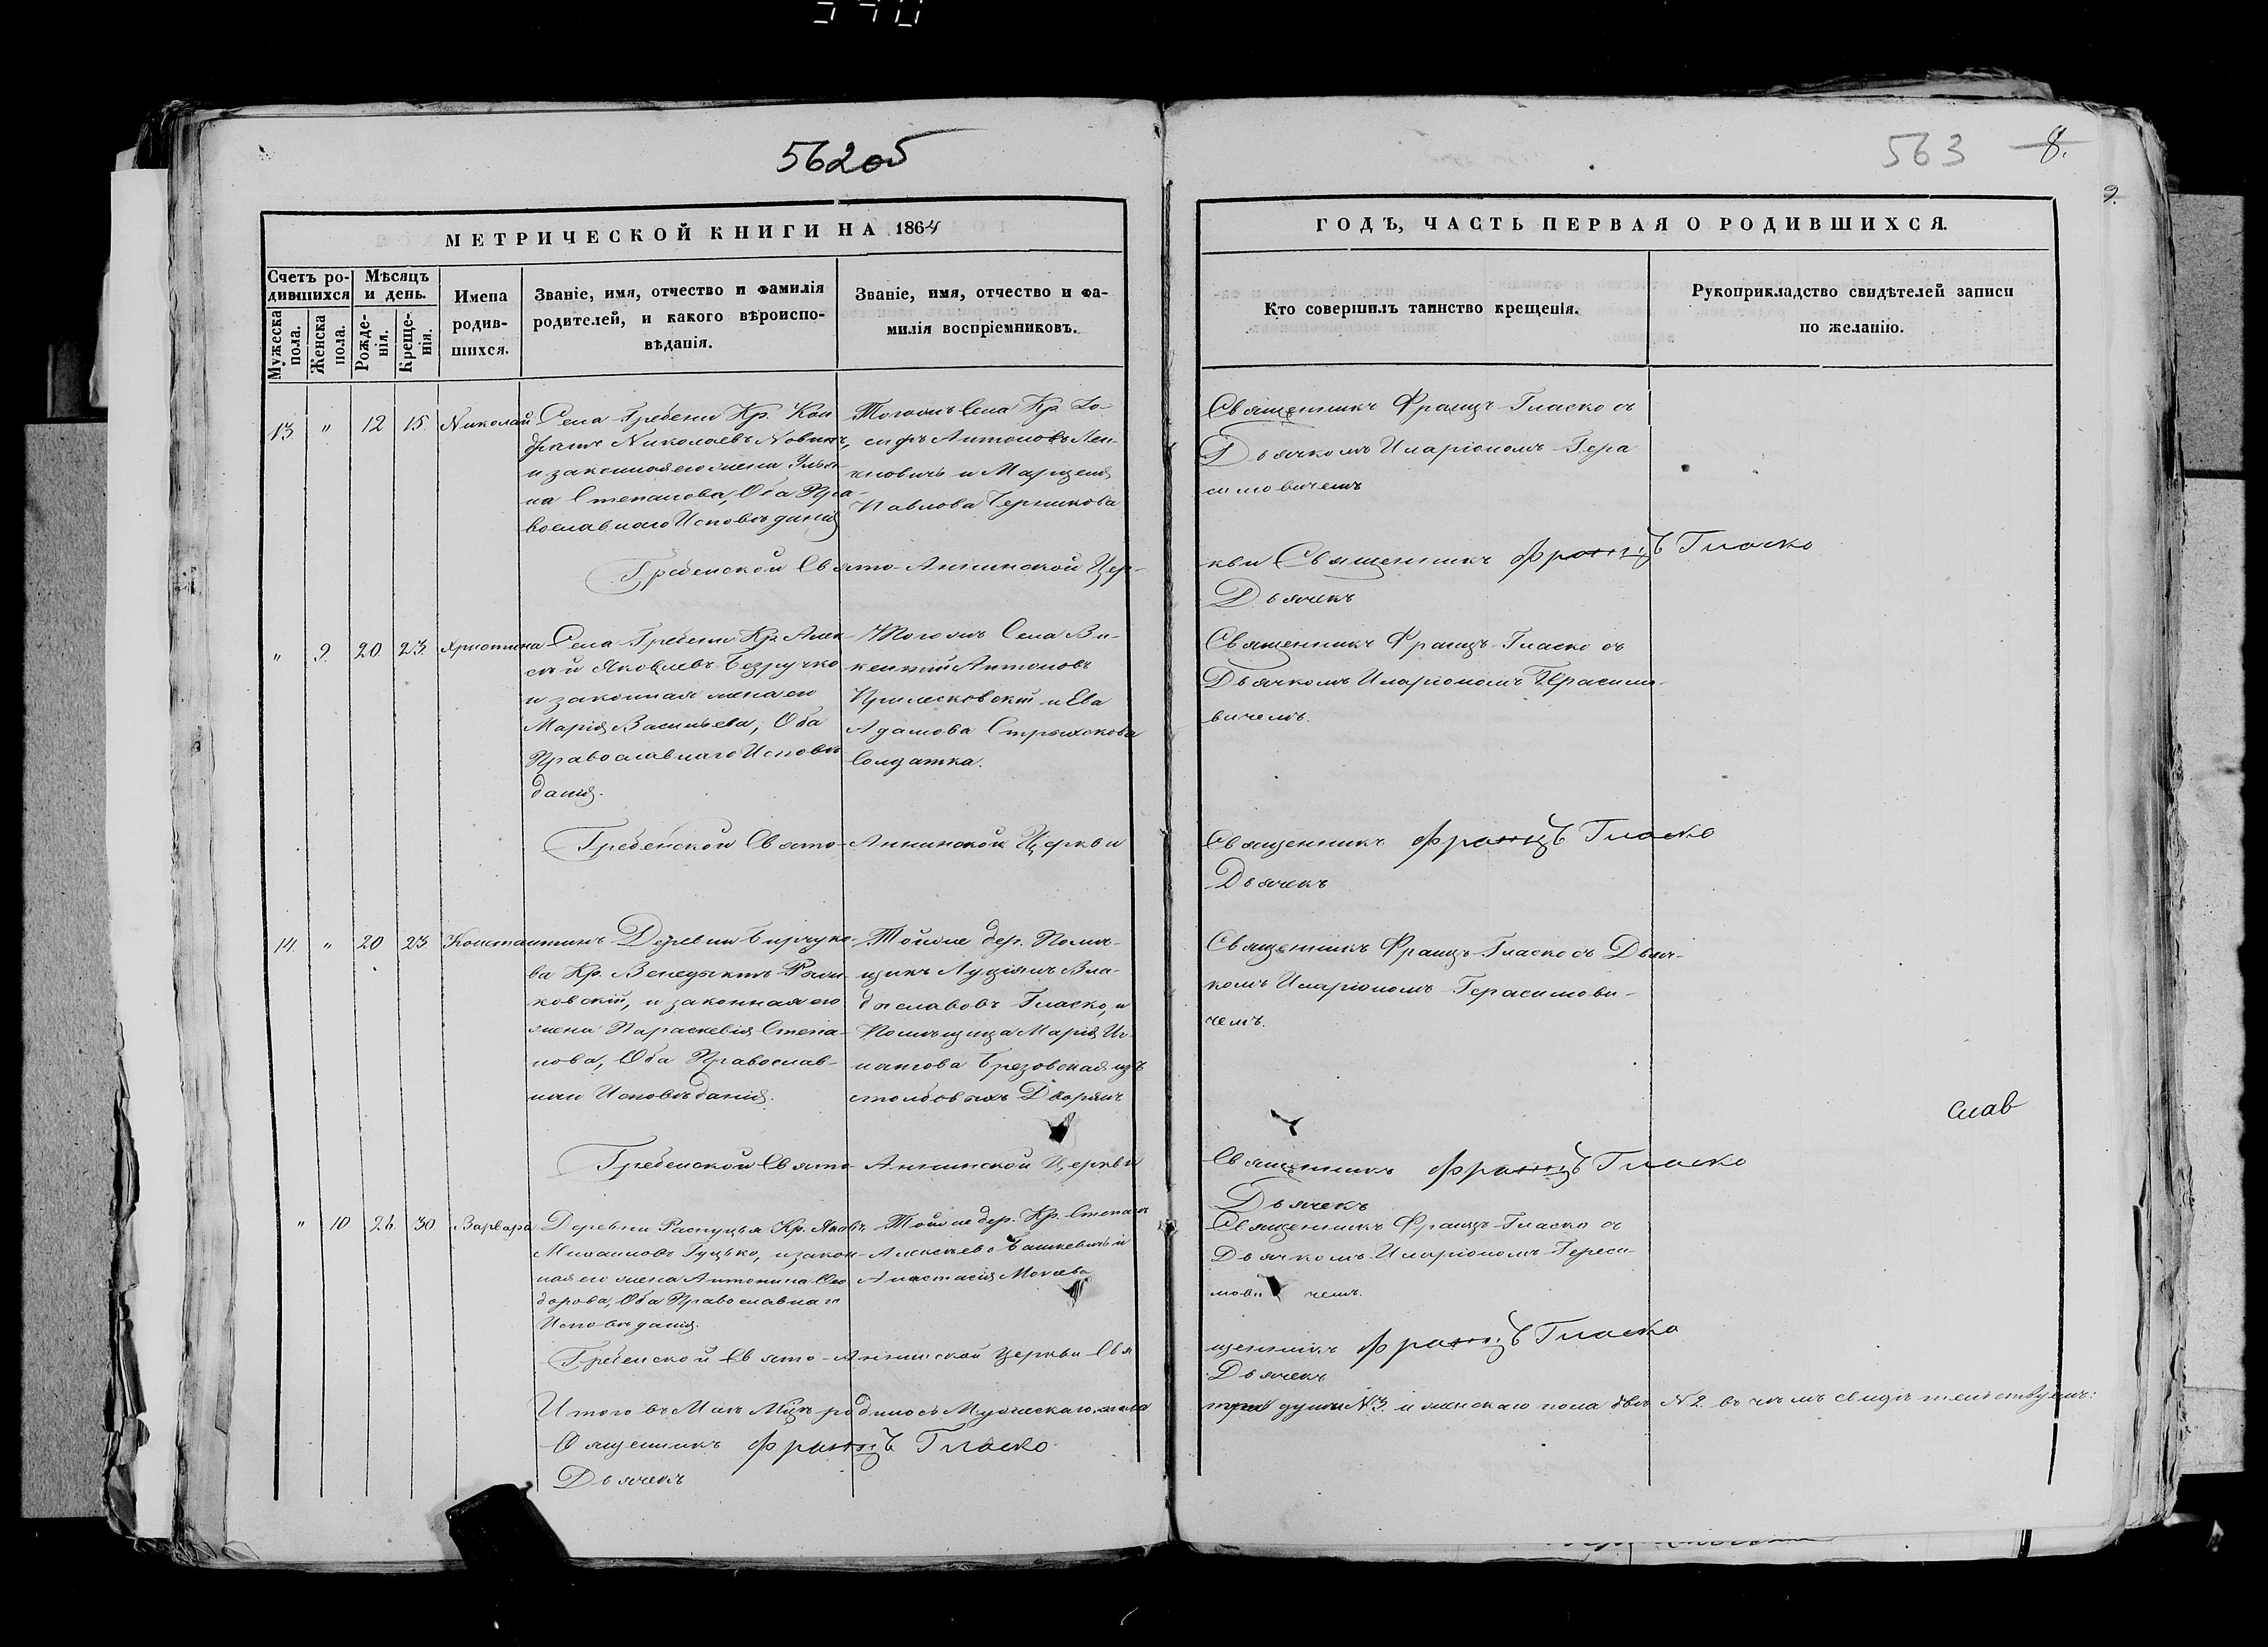 562об
563 8.
9.
МЕТРИЧЕСКОЙ КНИГИ НА 1864
ГОДЪ, ЧАСТЬ ПЕРВАЯ О РОДИВШИХСЯ.
Счетъ ро-
дившихся
Мужеска
пола.
Женска
пола.
Мѣсяцъ
и день.
Рожде-
нія.
Креще-
нія.
Имена
родив-
шихся.
Званіе, имя, отчество и фамилія
родителей, и какого вѣроиспо-
вѣданія.
Званіе, имя, отчество и фа-
милія воспріемниковъ.
Кто совершилъ таинство крещенія.
Рукоприкладство свидѣтелей записи
по желанію.
13. " 12 15. Николай
Села Гребени Кр. Кон
дратъ Николаевъ Новикъ,
и законная его жена Улья-
на Степанова, Оба Пра-
вославнаго Исповѣданія
Тогожъ Села Кр. Іо-
сифъ Антоновъ
и
Павлова
Священникъ Францъ Гласко съ
Дьячкомъ Иларіономъ Гера
симовичемъ
Гребенской Свято-Аннинской Цер-
кви Священникъ Францъ Гласко
Дьячекъ
" 9. 20. 23. Христина
Села Гребени Кр. Алек-
сѣй Яковлевъ Безручко
и законная жена его
Марія Васильева, Оба
Православнаго Исповѣ
данія.
Тогожъ Села Ви-
кентій Антоновъ
и Ева
Адамова
Солдатка.
Священникъ Францъ Гласко съ
Дьячкомъ Иларіономъ Герасимо-
вичемъ.
Гребенской Свято-Аннинской Церкви
Священникъ Францъ Гласко
Дьячекъ
14. " 20 23 Константинъ
Деревни
ва Кр. Венедыктъ
ковскій, и законная его
жена Параскевія Степа-
нова, Оба Православ-
наго Исповѣданія.
Тойже дер. Помѣ-
щикъ Луціянъ Вла-
диславовъ Гласко, и
Помѣщица Марія Иг-
натова Брезовская изъ
столбовыхъ Дворянъ
Священникъ Францъ Гласко съ Дьяч-
комъ Иларіономъ Герасимови-
чемъ.
слав
Гребенской Свято-Аннинской Церкви
Священникъ Францъ Гласко
Дьячекъ
" 10 26. 30. Варвара
Деревни Кр. Яковъ
Михаиловъ Гуцько, и закон-
ная его жена Антонина Ѳео
дорова, Оба Православнаго
Исповѣданія.
Тойже дер. Кр. Степанъ
Алексѣевъ и
Анастасія
Священникъ Францъ Гласко съ
Дьячкомъ Иларіономъ Гераси-
мови чемъ.
Гребенской Свято-Аннинской Церкви Свя
щенникъ Францъ Гласко
Дьячекъ
Итого въ Маѣ Мцѣ родилось Мужескаго пола
три души №3. и женскаго пола двѣ №2. въ чемъ свидѣтельствуемъ:
Священникъ Францъ Гласко
Дьячекъ